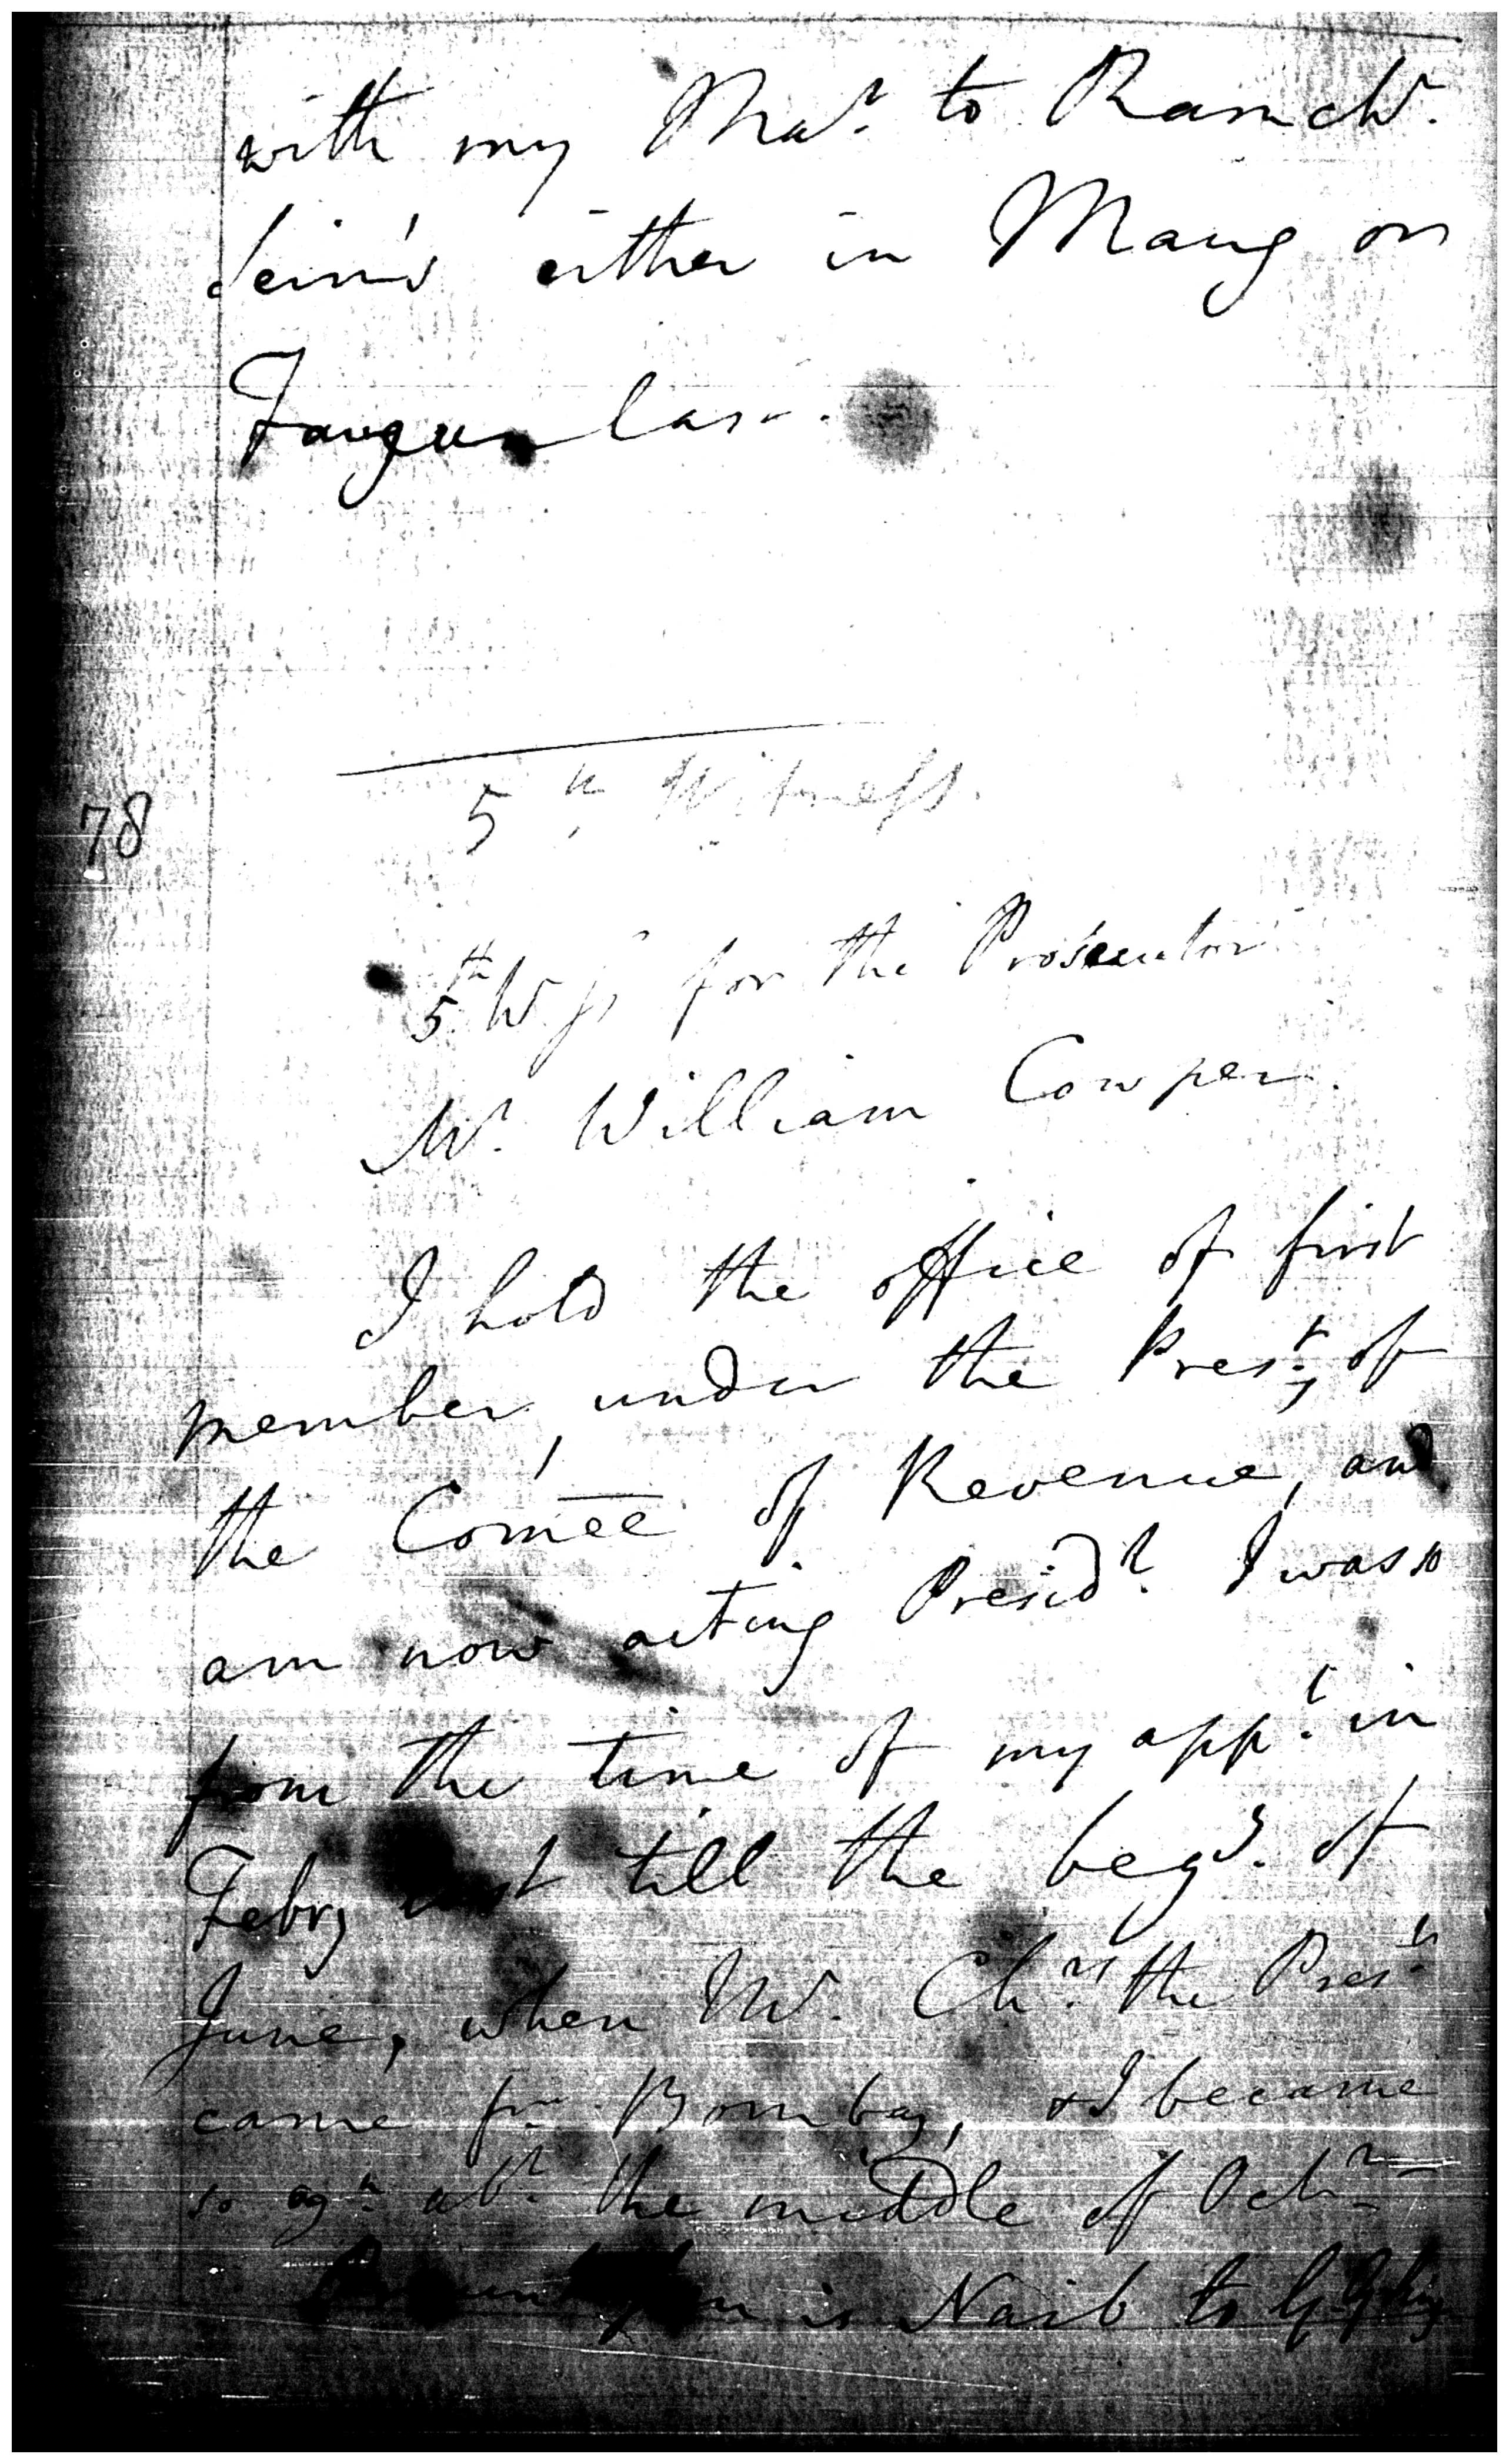 with my Mar. to Ramchr.
sein's either in Maug or
Faugun last.
5th Witness.
78
5th Wss for the Prosecutor
Mr. William Cowper.
I hold the office of first
member, under the Prest, of
the Comee of Revenue, and
am now acting Presidt. I was so
from the time of my appt. in
Febry last till the beg. of
June, when Mr. Chrs the Prest
came fm Bombay, & I became
so agn abt. the middle of Octr
is Naib to